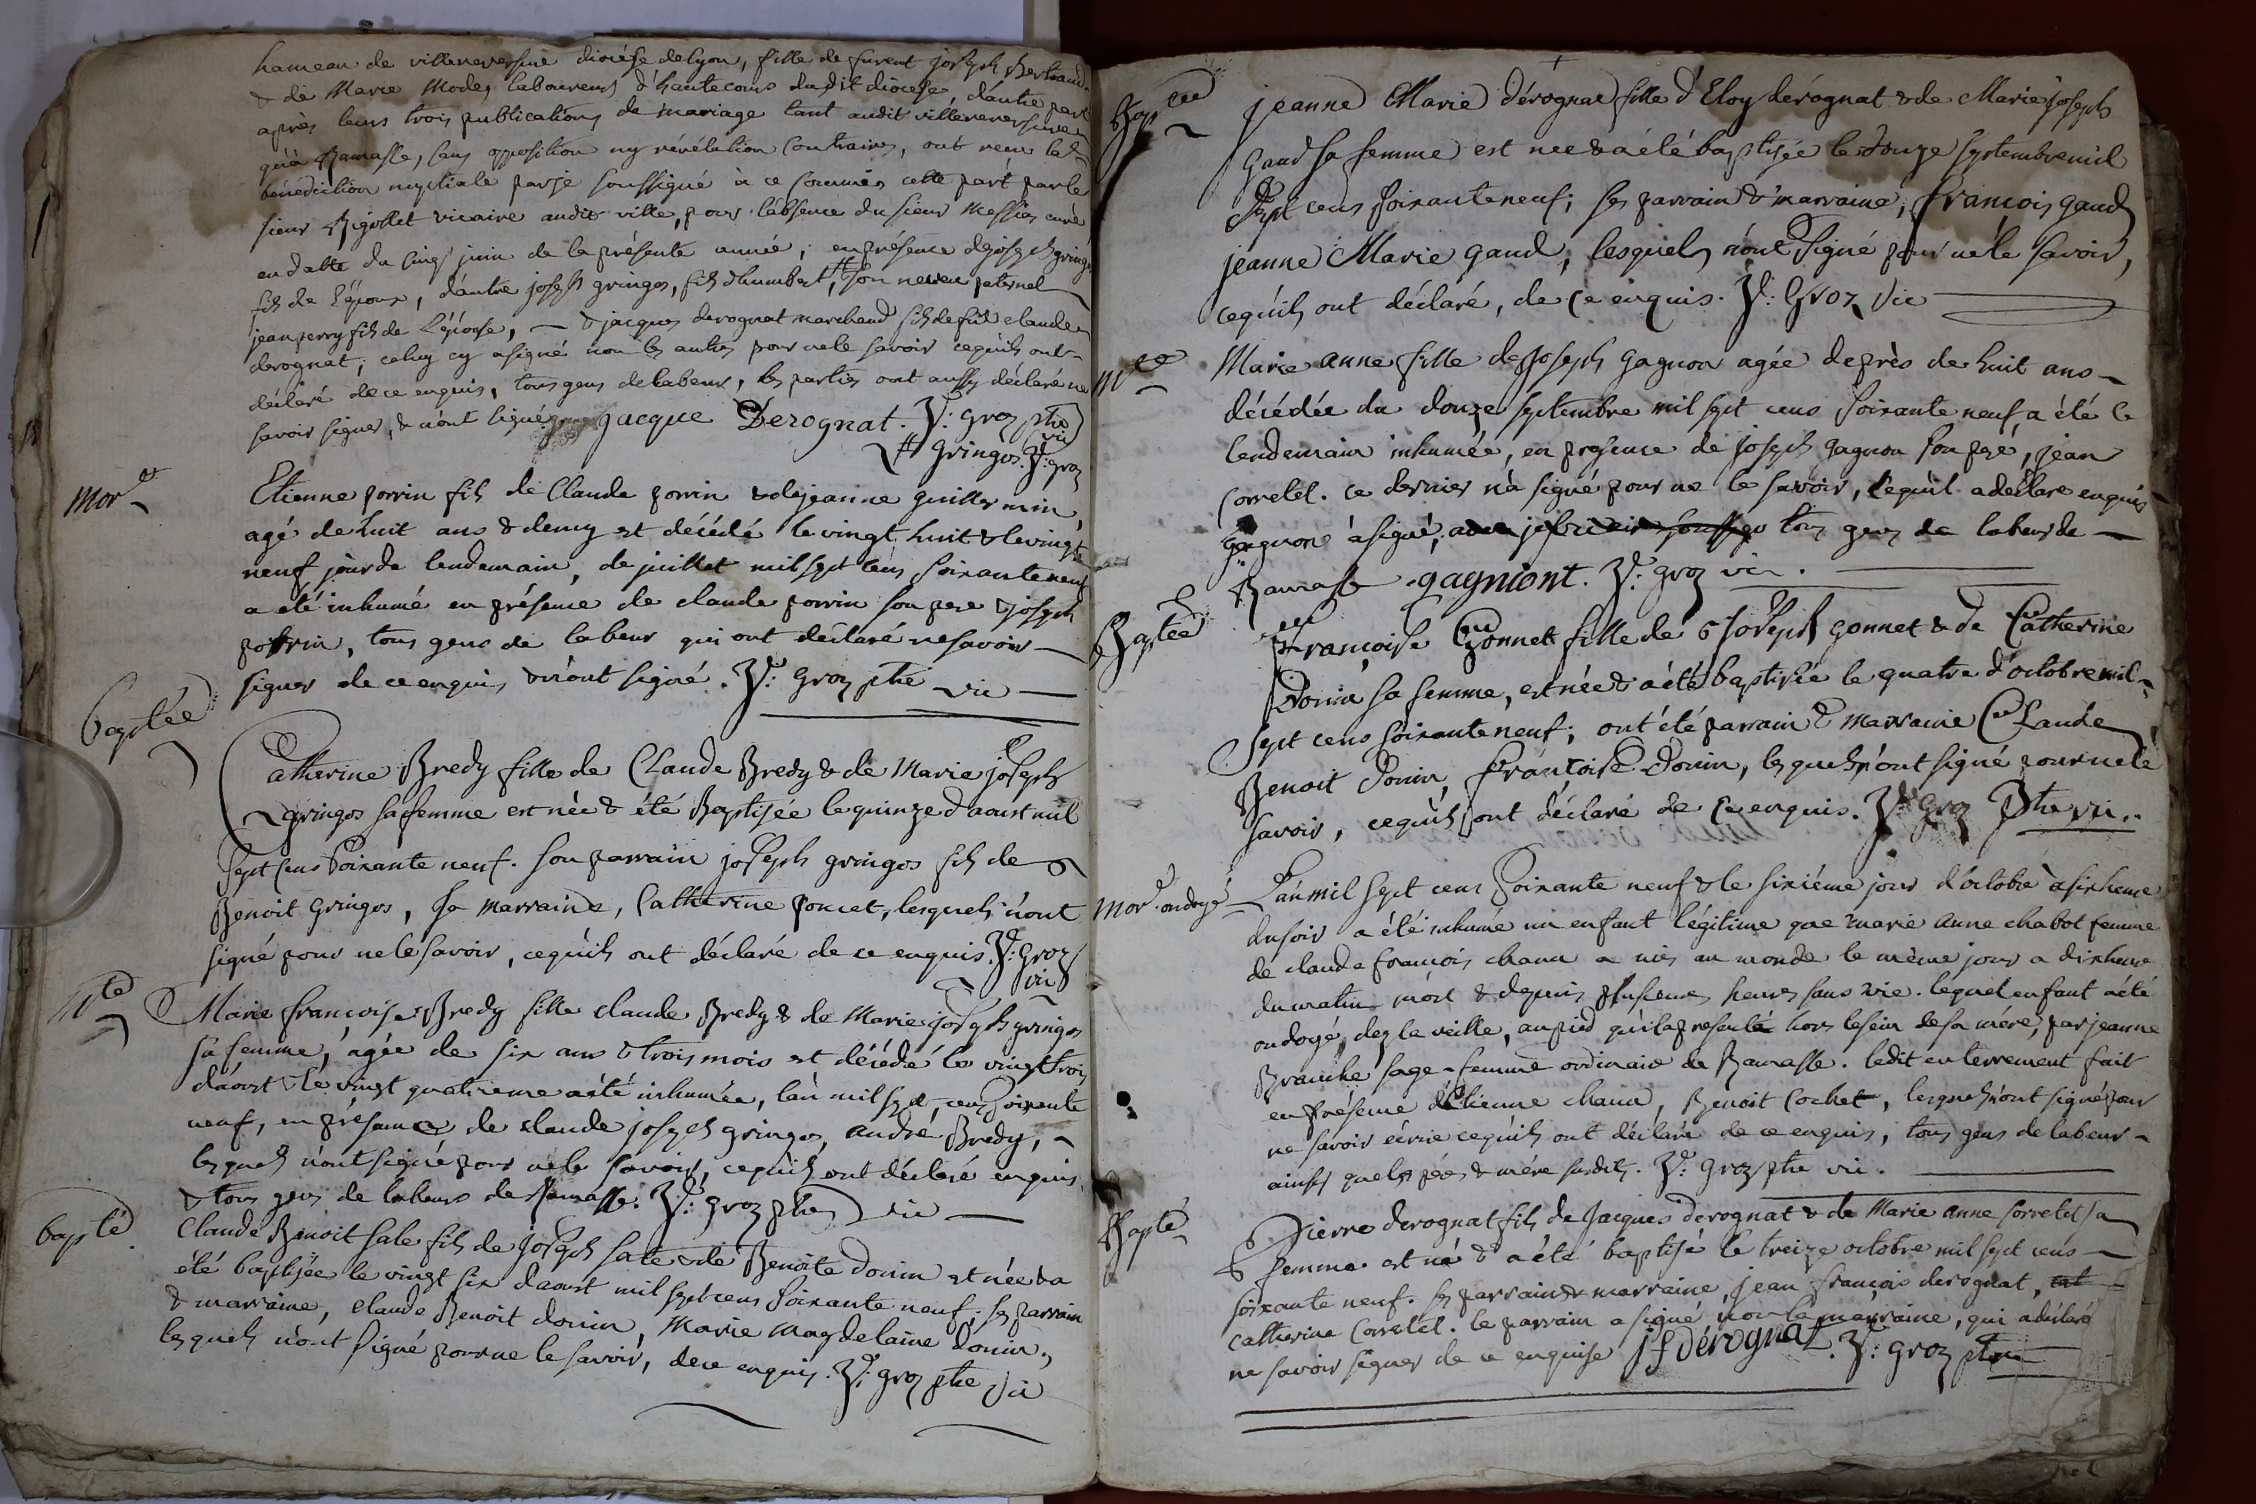 hameau de villereversure diocèse de Lyon, fille de furent joseph Bertrand
& de Marie Modes laboureurs d'hautecours dudit diocèse, d'autre part
après leurs trois publications de mariage tant audit villereversure
qu'à Ramasse, sans opposition ny révélation contraires, ont reçu la
bénédiction nuptiale par je soussigné à ce commis cette part par le
sieur Rigollet vicaire audit ville, pour l'absence du sieur Messies curé
en datte du cinq juin de la présente année; en présence de joseph gringos
fils de l'époux, d'autre joseph gringos, fils d'humbert, # son neveu paternel
jean perry fils de L'épouse, — & jacques derognat marchand fils de feu claude
derognat; celuy cy a signé non les autres pour ne le savoir cequ'ils ont
déclaré de ce enquis, tous gens de labeur, les parties ont aussy déclaré ne
savoir signer, & n'ont signé. jacque Derognat. P: Groz ptre vic
# Gringos. P: groz
Mort
Etienne porrin fils de Claude porrin & de jeanne guillermin,
agé de huit ans & demy est décédé le vingt huit & le vingt
neuf jour de lendemain, de juillet mil sept cens soixante neuf
a été inhumé en présence de claude porrin son pere & joseph
porrin, tous gens de labeur qui ont déclaré ne savoir —
signer de ce enquis, & n'ont signé. P: groz ptre vic —
baptée
Catherine Bredy fille de Claude Bredy & de Marie joseph
gringos sa femme est née & été Baptisée le quinze d'aoust mil
sept cens soixante neuf. son parrain joseph gringos fils de
Benoit gringos, sa marraine, Catherine poncet, lesquels n'ont
signé pour ne le savoir, cequ'ils ont déclaré de ce enquis. P: Groz
vic
Mte
Marie françoise Bredy fille claude Bredy & de Marie joseph gringos
sa femme, agée de six ans & trois mois est décédée le vingt trois
d'aoust & le vingt quatrieme a été inhumée, l'an mil sept cens soixante
neuf, en présance de claude joseph gringos, andré Bredy,
lesquels n'ont signé pour ne le savoir, cequ'ils ont déclaré enquis,
& tous gens de labeurs de Ramasse. P: groz ptre vic —
bapté
Claude Benoit Sale fils de joseph Sale & de Benoite donin est née & a
été baptisée le vingt six d'aoust mil sept cens soixante neuf; ses parrain
& marraine, claude Benoit donin, Marie Magdelaine donin,
lesquels n'ont signé pour ne le savoir, de ce enquis. P: groz ptre vic
Baptée
jeanne Marie dérognat fille d'Eloy dérognat & de Marie joseph
gaud sa femme est née & a été baptisée le douze septembre mil
sept cens soixante neuf; ses parrain & marraine, françois gaud
jeanne Marie gaud, lesquels n'ont signé pour ne le savoir,
cequ'ils ont déclaré, de ce enquis. P: Groz vic
Mte
Marie anne fille de joseph gagnon agée de près de huit ans
décédée du douze septembre mil sept cens soixante neuf, a été le
lendemain inhumée, en presence de joseph gagnon son pere, jean
Correlet. ce dernier n'a signé pour ne le savoir, cequ'il a déclaré enquis
gagnon à signé; tous gens de labeur de —
Ramasse. gagniont. P: groz vic.
Baptée
françoise Gonnet fille de joseph gonnet & de Catherine
Donin sa femme, est née & a été baptisée le quatre d'octobre mil
sept cens soixante neuf; ont été parrain & marraine Claude
Benoit donin, françoise donin, lesquels n'ont signé pour ne le
savoir, cequ'ils ont déclaré de ce enquis. P: groz Ptre vic.
Mort ondoyé
L'an mil sept cens soixante neuf & le sixiéme jour d'octobre à six heure
du soir a été inhumé un enfant légitime que marie anne chabot femme
de claude françois chanu a mis au monde le même jour a dix heure
du matin mort & depuis plusieurs heures sans vie. lequel enfant a été
ondoyé dez la veille, au pied qu'il a presenté hors le sein de sa mére, par jeanne
Branche sage-femme ordinaire de Ramasse. ledit enterrement fait
en présence d'Etienne chanu, Benoit Cochet, lesquels n'ont signé pour
ne savoir écrire cequ'ils ont déclaré de ce enquis, tous gens de labeur
ainsy que les pére & mére susdits. P: groz ptre vic.
Bapté
Pierre derognat fils de Jacques derognat & de Marie anne Correlet sa
femme est né & a été baptisé le treize octobre mil sept cens
soixante neuf. ses parrain & marraine, jean françois derognat,
catherine Correlet. le parrain a signé non la marraine, qui a déclaré
ne savoir signer de ce enquise jf dérognat. P: groz ptre